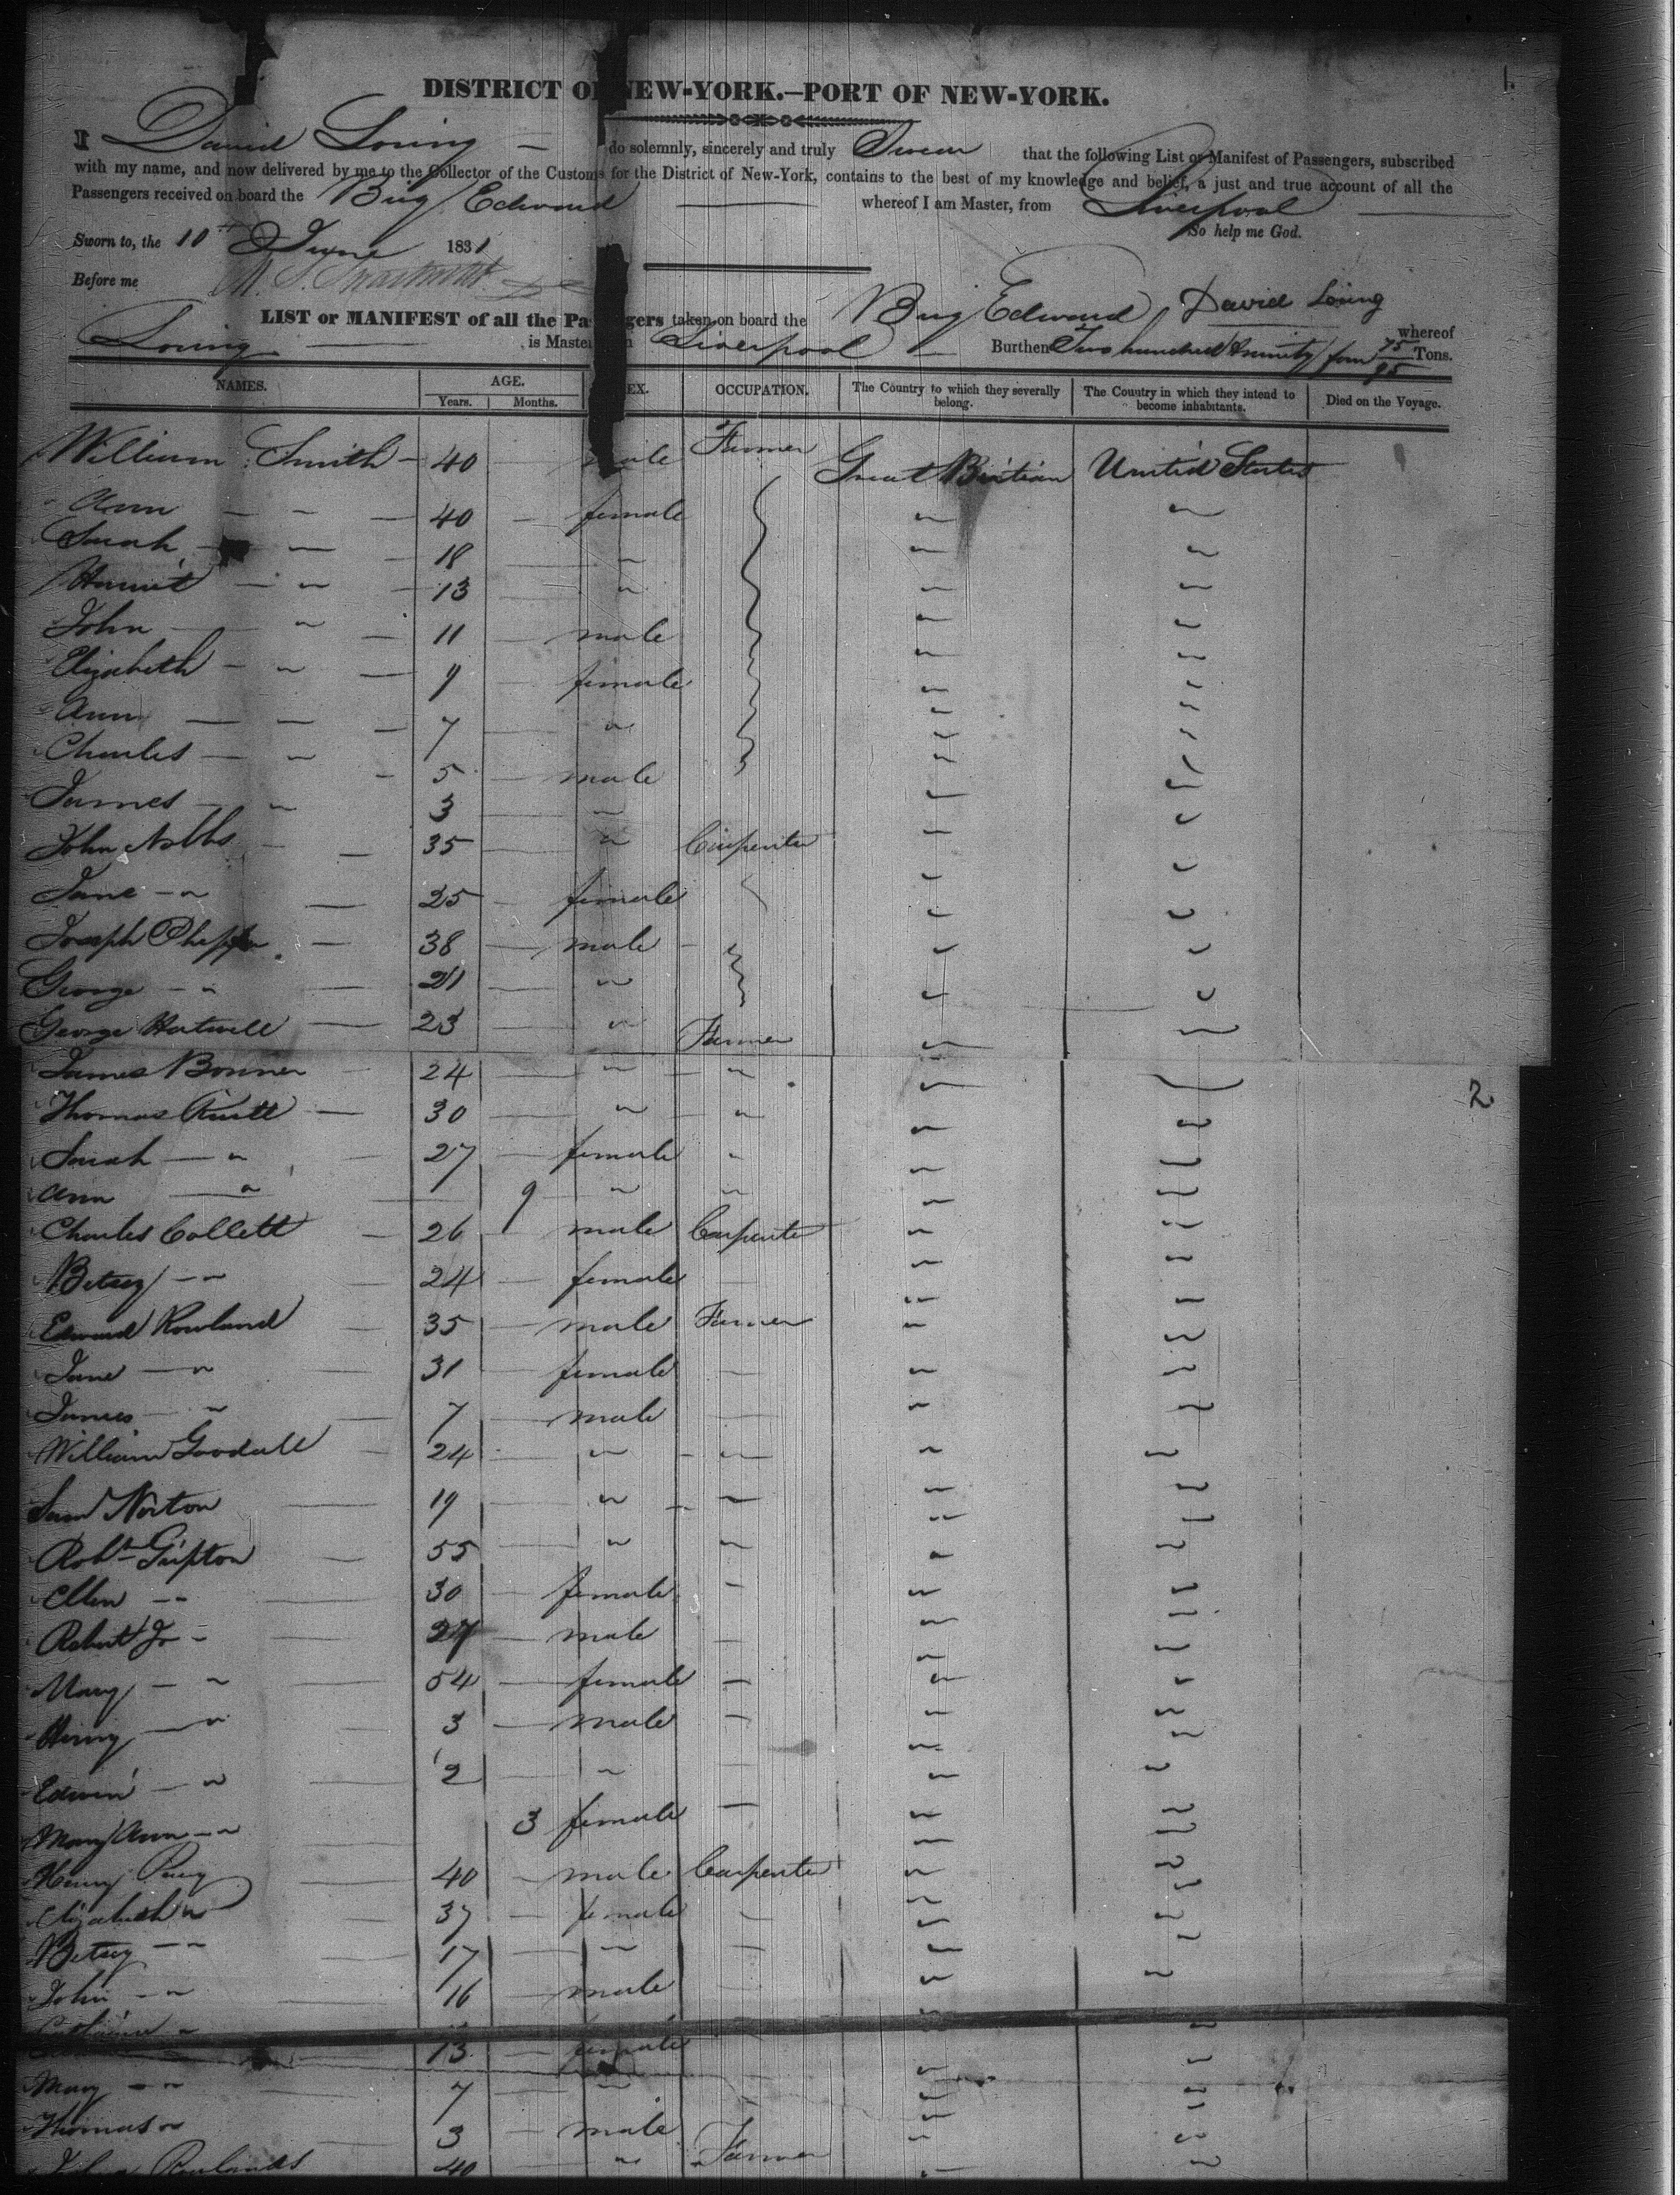 1.
DISTRICT OF NEW-YORK.—PORT OF NEW-YORK.
I David Loring — do solemnly, sincerely and truly Swear that the following List or Manifest of Passengers, subscribed
with my name, and now delivered by me to the Collector of the Customs for the District of New-York, contains to the best of my knowledge and belief, a just and true account of all the
Passengers received on board the Brig Edward whereof I am Master, from Liverpool
So help me God.
Sworn to, the 10th June 1831
Before me
David Loring
LIST or MANIFEST of all the Pa gers taken on board the Brig Edward whereof
Loring is Maste Liverpool Burthen Two hundred & ninety four 75/95 Tons.
NAMES. AGE. EX. OCCUPATION. The Country to which they severally belong. The Country in which they intend to become inhabitants. Died on the Voyage.
Years. Months.
William Smith — 40 male Farmer Great Britian United States
Ann — " — 40 — female " "
Sarah — " — 18 — " " "
Harriet — " — 13 — " " "
John — " — 11 — male " "
Elizabeth — " — 9 — female " "
Ann — — — 7 — " " "
Charles — " — 5 — male " "
James — " 3 — " " "
John Nobbs — 35 — " Carpenter " "
Jane — " — 25 — female " "
Joseph — 38 — male - " "
George — " — 21 — " " "
George Hartwell — 23 — " Farmer " "
James Bonner — 24 — " — " " "
2
Thomas — 30 — " — " " "
Sarah — " — 27 — female " " "
Ann — " — 9 " " " "
Charles Collett — 26 — male Carpenter " "
Betsey — " — 24 — female — " "
Edward Rowland — 35 — male Farmer " "
Jane — " — 31 — female — " "
James — " — 7 — male — " "
William Goodall — 24 — " — " " "
Saml Norton — 19 — " — " " "
Robt Gripton — 55 — " " " "
Ellen — " — 30 — female — " "
Robert Jr — 27 — male — " "
Mary — " — 54 — female — " "
Henry — " — 3 — male — " "
Edwin — " — 2 — " — " "
Mary Ann — " 3 female — " "
Henry — 40 — male Carpenter " "
Elizabeth " — 37 — female — " "
Betsey — " — 17 — " — " "
John — " — 16 — male — " "
Catharine " 13 — female " "
Mary — " — 7 — " " "
Thomas " — 3 — male " "
John Rowlands 40 — " Farmer " "